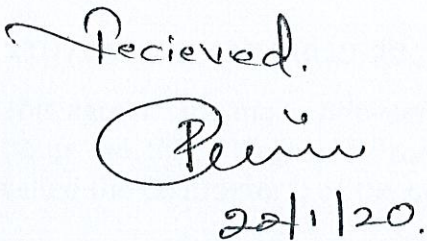 Recieved.
22/1/20.